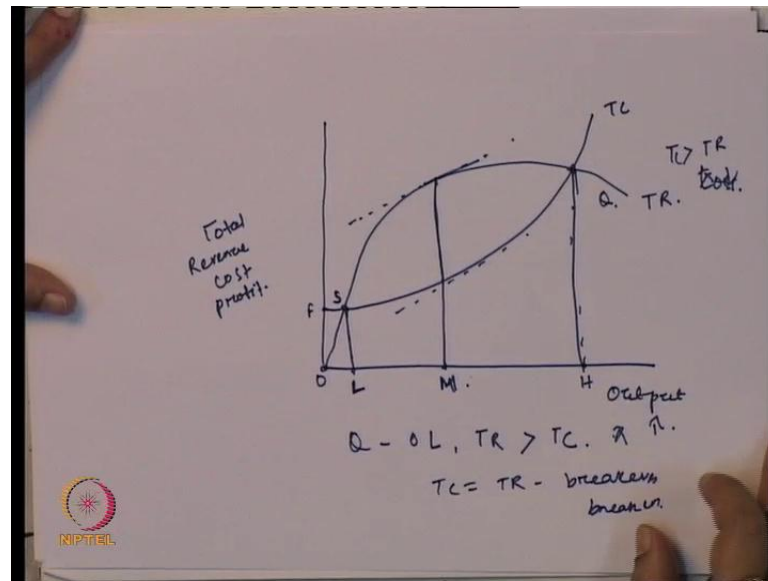 TC
TC > TR
Q.
TR.
Total
Revenue
cost
profit.
F
S
O
L
M.
H
Output
Q - OL, TR > TC. π.
TC = TR - breakeven
NPTEL